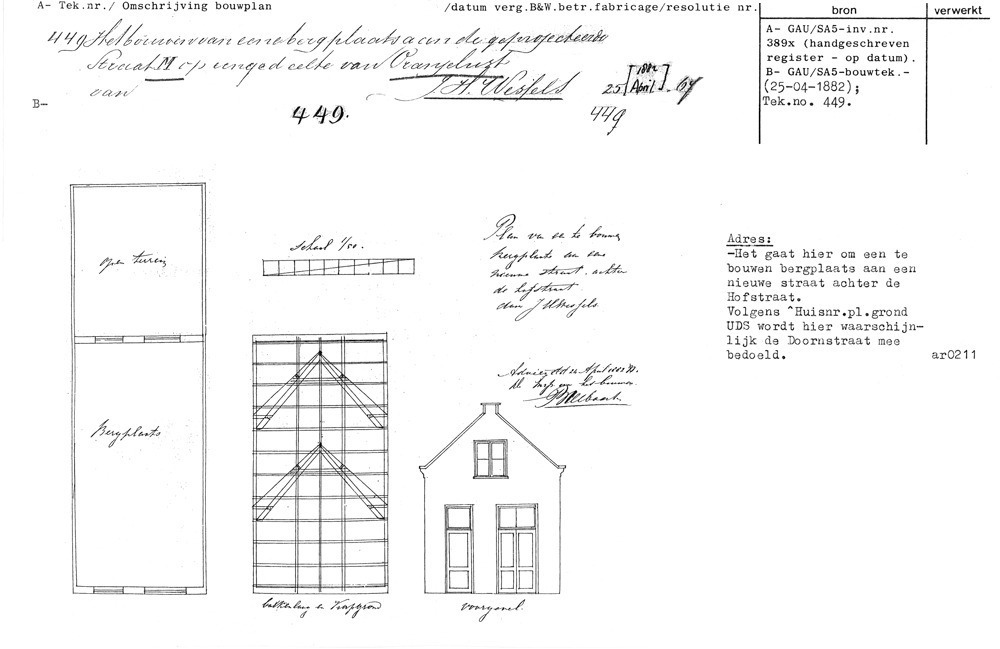 A- Tek.nr./ Omschrijving bouwplan /datum verg.B&W.betr.fabricage/resolutie nr. bron verwerkt
449 Het bouwen van eene bergplaats aan de geprojecteerde
Straat M op ungedeelte van Oranjelust
van J.H. Wessels 25 [1882 April]. 67
B-
449. 449
A- GAU/SA5-inv.nr.
389x (handgeschreven
register - op datum).
B- GAU/SA5-bouwtek.-
(25-04-1882);
Tek.no. 449.
Open terrein
Bergplaats
Schaal 1/50.
Plan van een te bouwen
Bergplaats aan een
nieuwe straat achter
de hofstraat
door J H Wessels
Adres:
-Het gaat hier om een te
bouwen bergplaats aan een
nieuwe straat achter de
Hofstraat.
Volgens ^Huisnr.pl.grond
UDS wordt hier waarschijn-
lijk de Doornstraat mee
bedoeld. ar0211
April 1882
balkenlaag en Kapgrond
voorgevel.